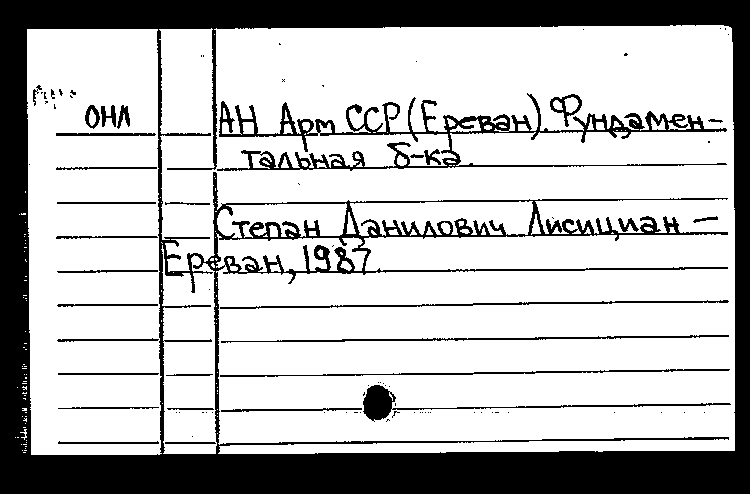 ОНЛ
АН Арм ССР (Ереван). Фундамен-
тальная б-ка.
Степан Данилович Лисициан —
Ереван, 1987.